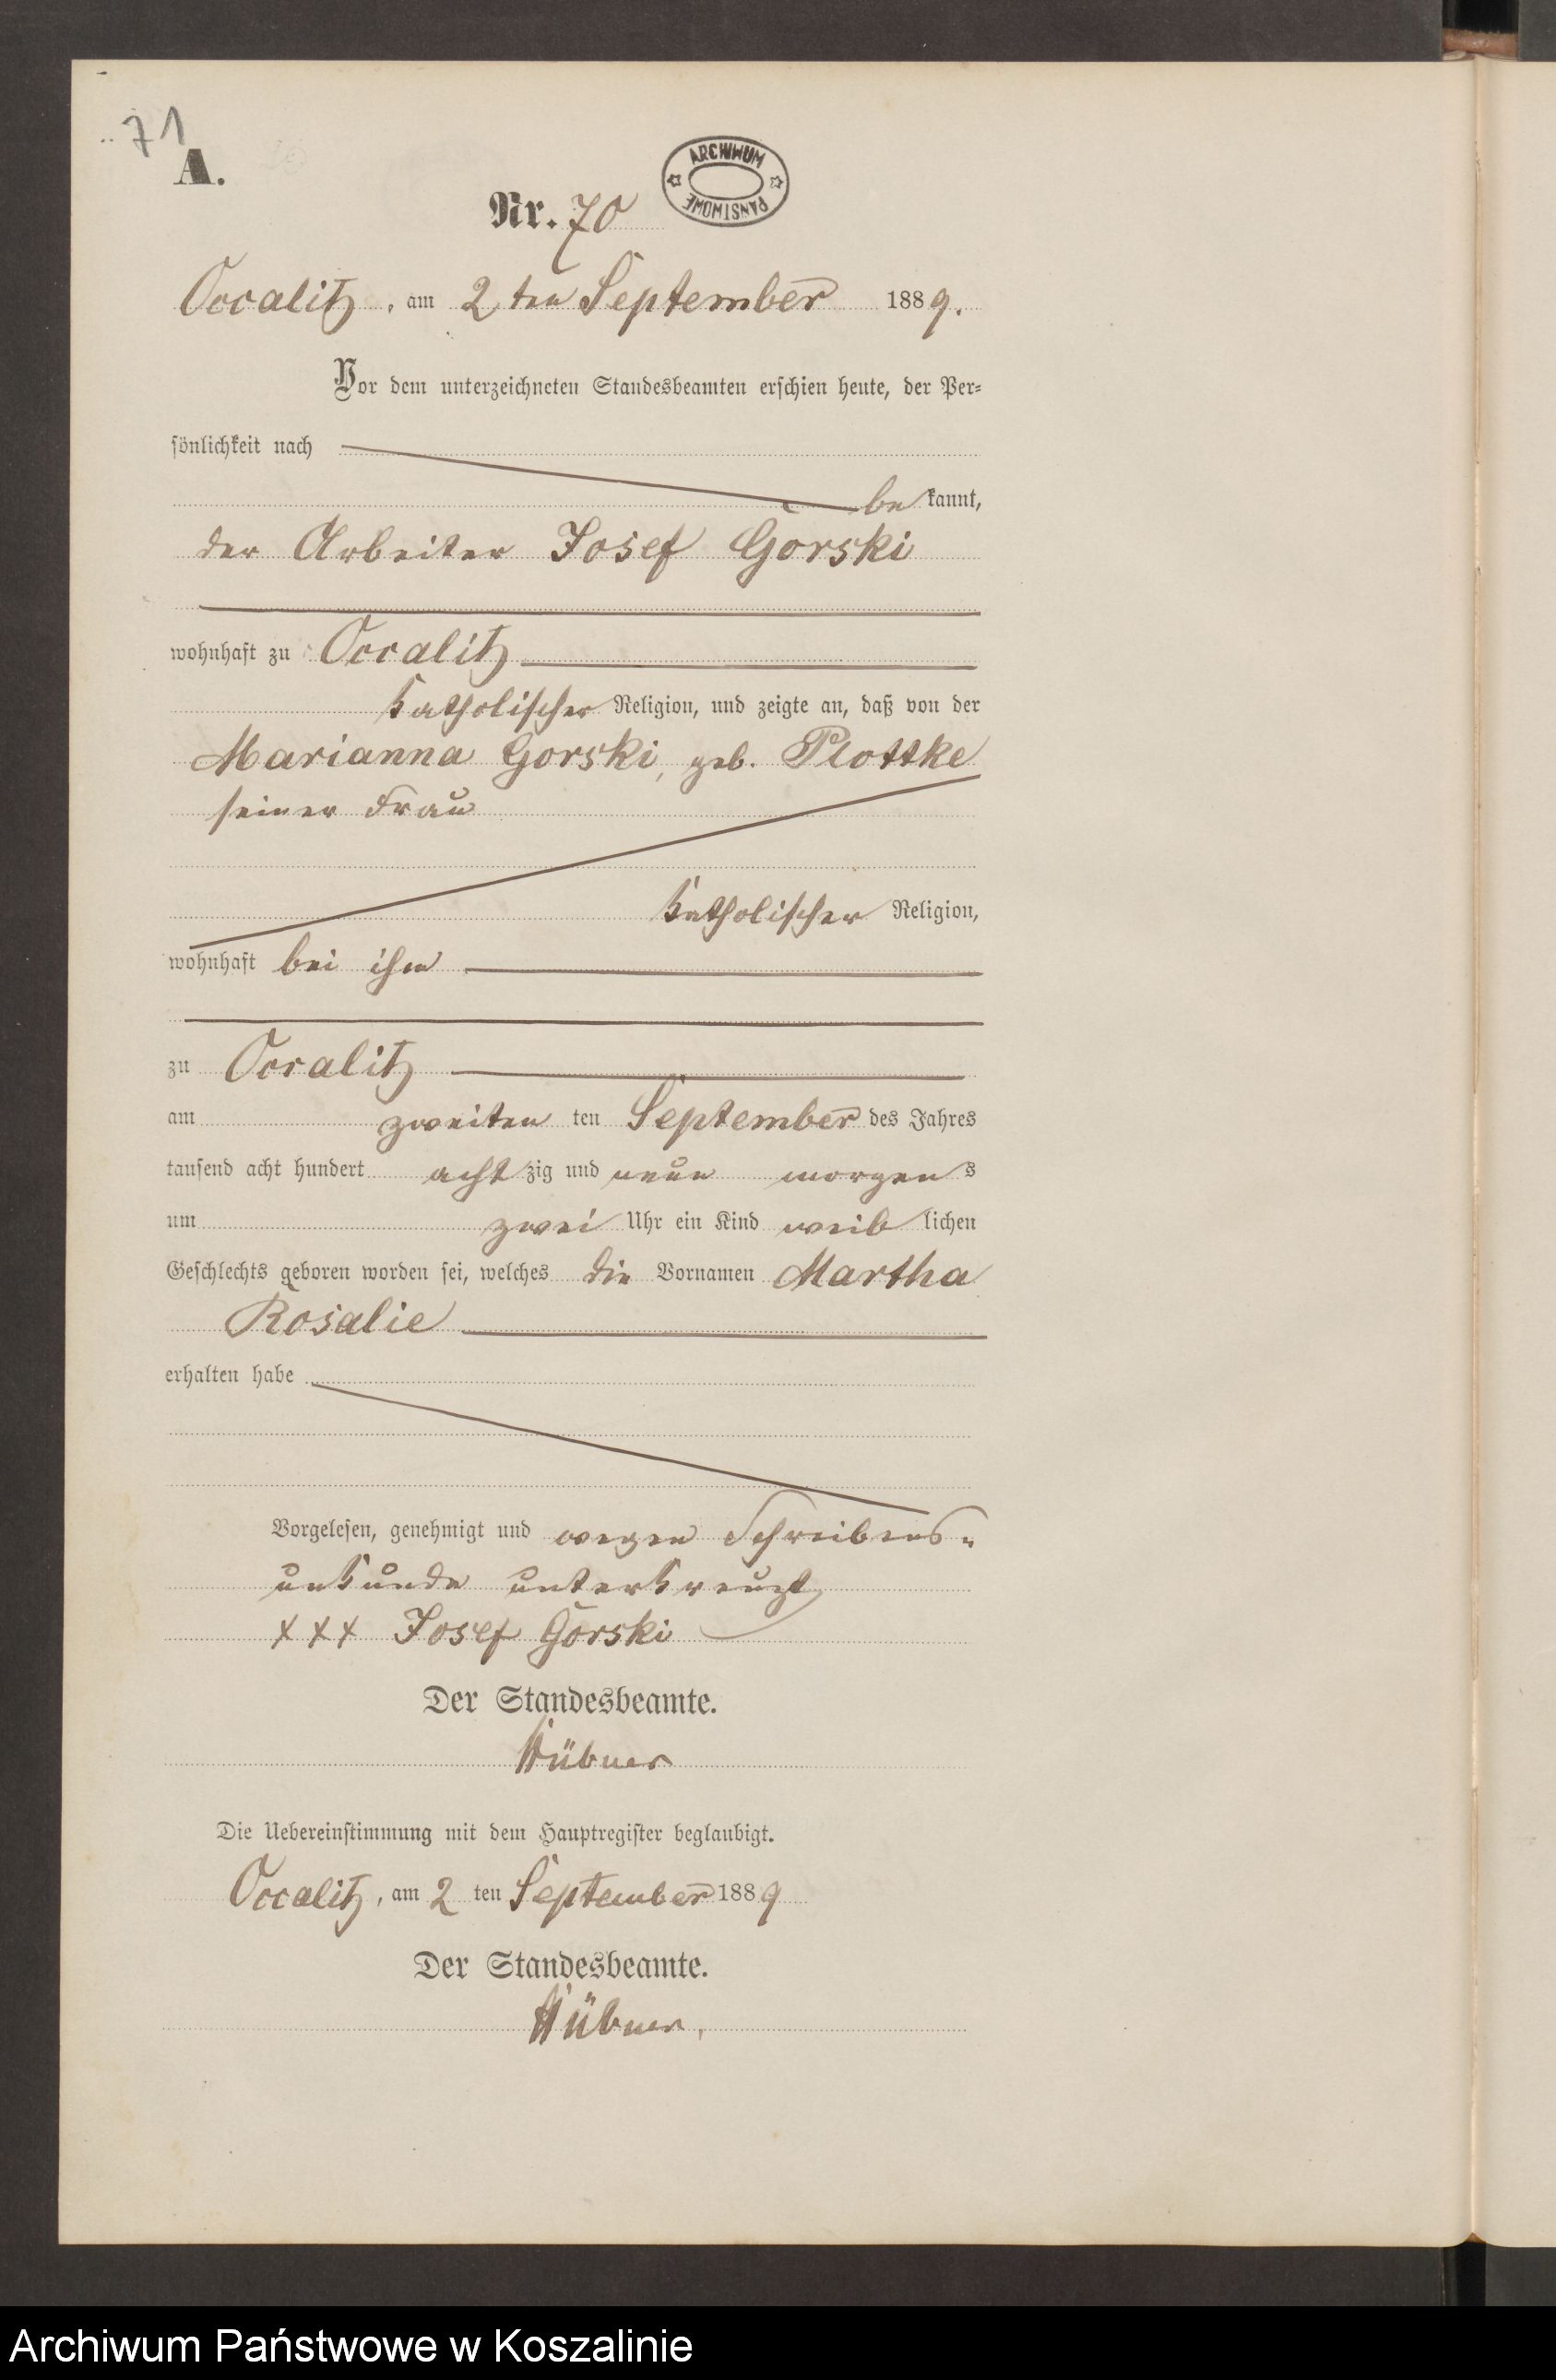 71
A.
ARCHIWUM PAŃSTWOWE
Nr. 70
Occalitz, am 2 ten September 1889.
Vor dem unterzeichneten Standesbeamten erschien heute, der Per-
sönlichkeit nach
be kannt,
der Arbeiter Josef Górski
wohnhaft zu Occalitz
katholischer Religion, und zeigte an, daß von der
Marianna Gorski, geb. Plottke
seiner Frau
katholischer Religion,
wohnhaft bei ihm
zu Occalitz
am zweiten ten September des Jahres
tausend acht hundert acht zig und neun morgen s
um zwei Uhr ein Kind weib lichen
Geschlechts geboren worden sei, welches die Vornamen Martha
Rosalie
erhalten habe
Vorgelesen, genehmigt und wegen Schreibens-
unkunde unterkreuzt
+++ Josef Górski
Der Standesbeamte.
Hübner
Die Uebereinstimmung mit dem Hauptregister beglaubigt.
Occalitz, am 2 ten September 1889
Der Standesbeamte.
Hübner.
Archiwum Państwowe w Koszalinie